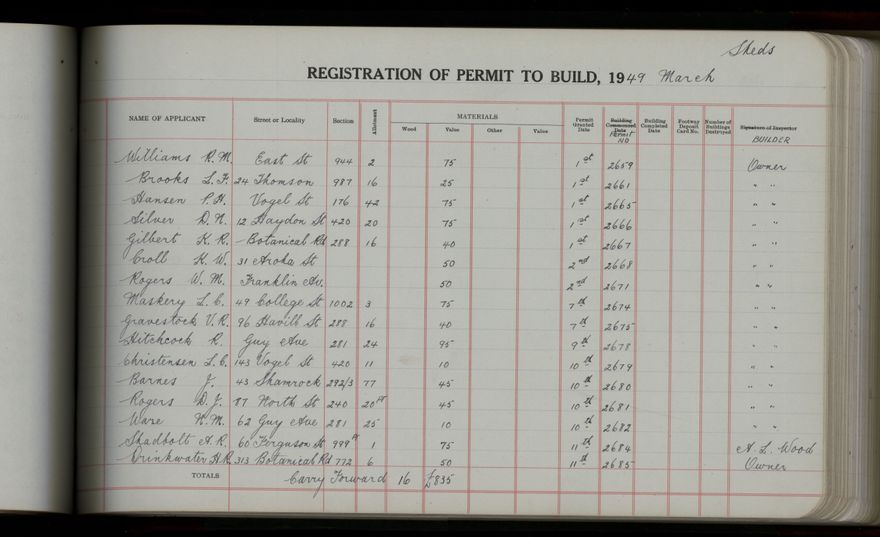 Sheds
REGISTRATION OF PERMIT TO BUILD, 1949 March
NAME OF APPLICANT Street or Locality Section Allotment MATERIALS Wood Value Other Value Permit Granted Date Building Commenced Date Permit No Building Completed Date Footway Deposit Card No. Number of Buildings Destroyed Signature of Inspector BUILDER
Williams R. M. East St 944 2 75 1st 2659 Owner
Brooks L. F. 24 Thomson 987 16 25 1st 2661 " "
Hansen P. H. Vogel St 176 42 75 1st 2665 " "
Silver D. N. 12 Haydon St 420 20 75 1st 2666 " "
Gilbert K. R. Botanical Rd 288 16 40 1st 2667 " "
Croll K. W. 31 Aroha St 50 2nd 2668 " "
Rogers W. M. Franklin Av. 50 2nd 2671 " "
Maskery L. C. 49 College St 1002 3 75 7th 2674 " "
Gravestock V. R. 96 Savill St 288 16 40 7th 2675 " "
Hitchcock R. Guy Ave 281 24 95 9th 2678 " "
Christensen L. C. 143 Vogel St 420 11 10 10th 2679 " "
Barnes J. 43 Shamrock 292/3 77 45 10th 2680 " "
Rogers D. J. 87 North St 240 20pt 45 10th 2681 " "
Ware N. M. 62 Guy Ave 281 25 10 10th 2682 " "
Shadbolt A. R. 60 Ferguson St 999pt 1 75 11th 2684 A. L. Wood
Drinkwater H. R. 313 Botanical Rd 772 6 50 11th 2685 Owner
TOTALS Carry Forward 16 £835